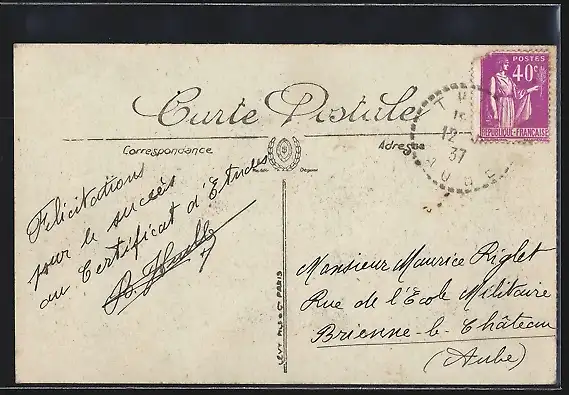 Carte Postale
POSTES
40c
RÉPUBLIQUE FRANÇAISE
12
37
AUBE
Correspondance
Adresse
Félicitations
pour le succès
au Certificat d'Etudes
LEVY FILS & Cie PARIS
Monsieur Maurice Riglet
Rue de l'École Militaire
Brienne-le-Château
(Aube)